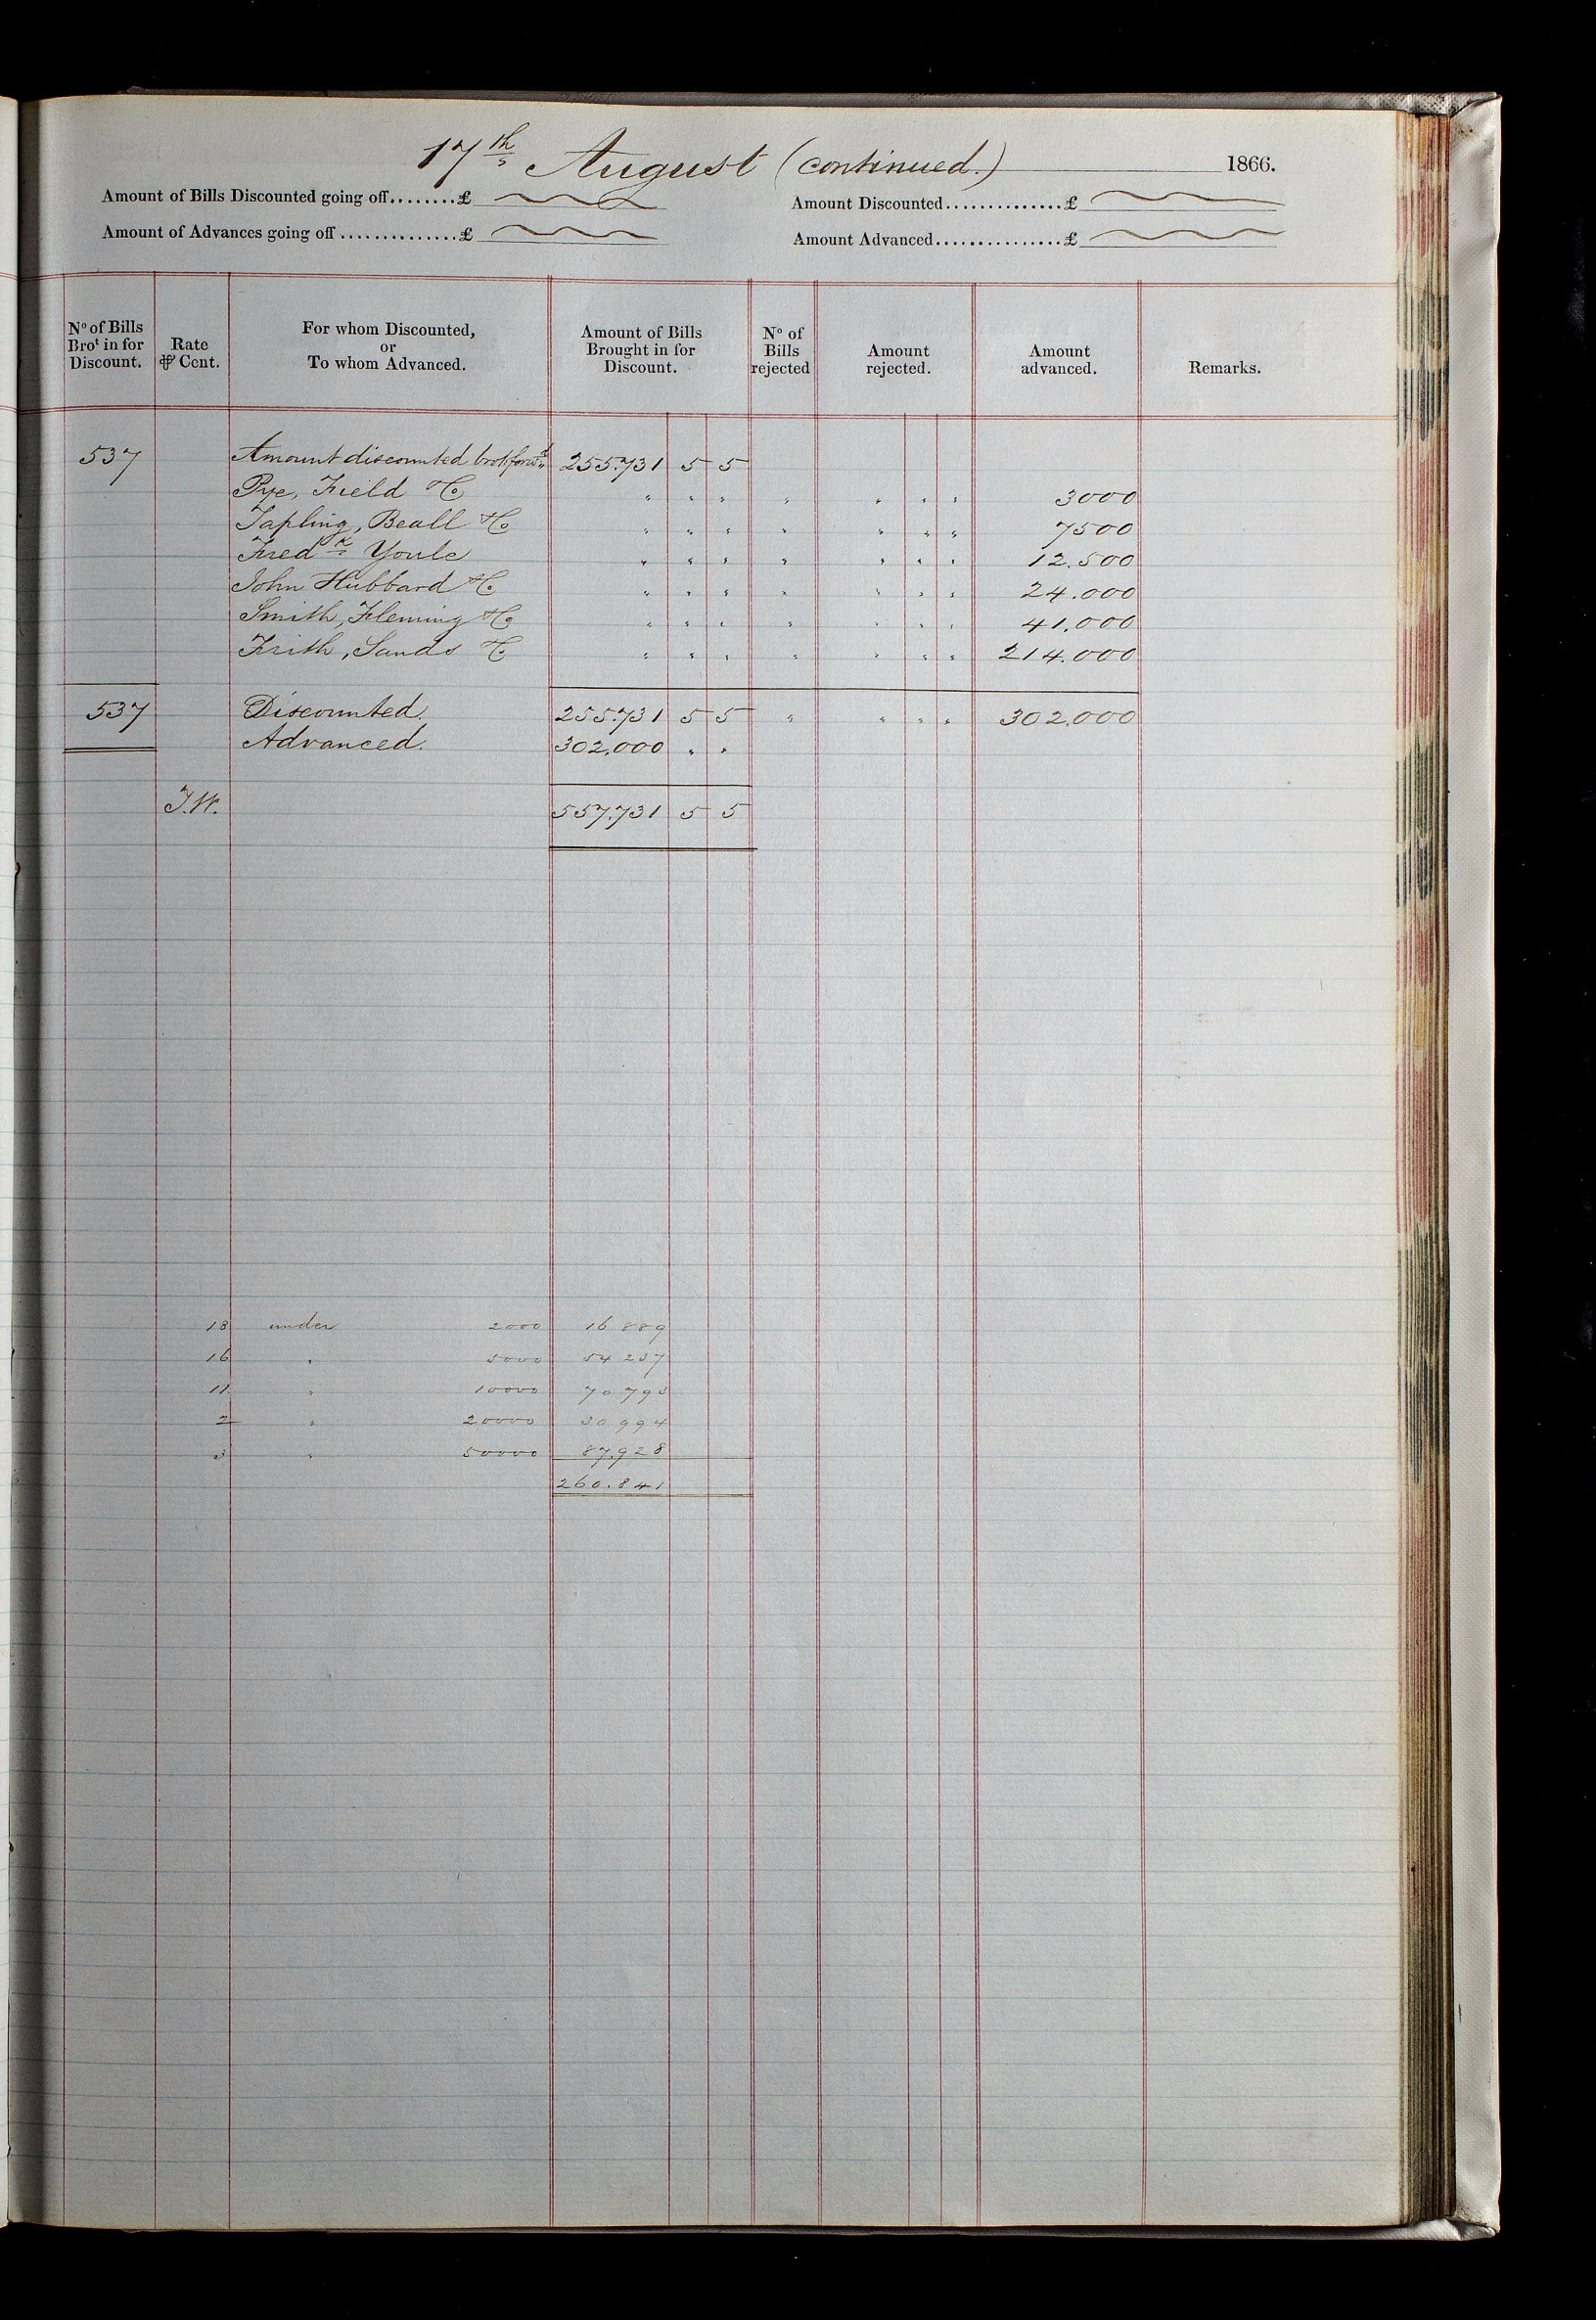 17th August (continued.) 1866.
Amount of Bills Discounted going off........£ Amount Discounted..............£
Amount of Advances going off..............£ Amount Advanced................£
No of Bills Brot in for Discount. Rate ⅌ Cent. For whom Discounted, or To whom Advanced. Amount of Bills Brought in for Discount. No of Bills rejected Amount rejected. Amount advanced. Remarks.
537 Amount discounted brot forwd 255.731 5 5
Pye, Field & Co " " " " " " " 3000
Tapling, Beall & Co " " " " " " " 7500
Fredk Youle " " " " " " " 12.500
John Hubbard & Co " " " " " " " 24.000
Smith, Fleming & Co " " " " " " " 41.000
Frith, Sands & Co " " " " " " " 214.000
537 Discounted. 255.731 5 5 " " " " 302.000
Advanced. 302.000 " "
J.W. 557.731 5 5
18 under 2000 16 889
16 " 5000 54 237
11 " 10000 70 793
2 " 20000 30 994
3 " 50000 87.928
260.841